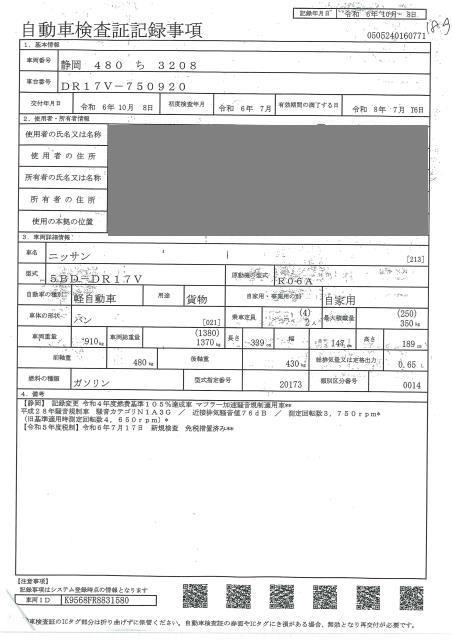 記録年月日 令和 6年10月 8日
自動車検査証記録事項
0505240160771
1. 基本情報
車両番号 静岡 480 ち 3208
車台番号 DR17V-750920
交付年月日 令和 6年10月 8日 初度検査年月 令和 6年 7月 有効期間の満了する日 令和 8年 7月 16日
2. 使用者・所有者情報
使用者の氏名又は名称
使用者の住所
所有者の氏名又は名称
所有者の住所
使用の本拠の位置
3. 車両詳細情報
車名 ニッサン [213]
型式 5BD-DR17V 原動機の型式 R06A
自動車の種別 軽自動車 用途 貨物 自家用・事業用の別 自家用
車体の形状 バン [021] 乗車定員 (4) 2人 最大積載量 (250) 350kg
車両重量 910kg 車両総重量 (1380) 1370kg 長さ 339cm 幅 147cm 高さ 189cm
前前軸重 480kg 後後軸重 430kg 総排気量又は定格出力 0.65L
燃料の種類 ガソリン 型式指定番号 20173 類別区分番号 0014
4. 備考
【静岡】 記録変更 令和4年度燃費基準105%達成車 マフラー加速騒音規制適用車**
平成28年騒音規制車 騒音カテゴリN1A3G / 近接排気騒音値76dB / 測定回転数3,750rpm*
(旧基準適用時測定回転数4,650rpm)*
【令和5年度税制】令和6年7月17日 新規検査 免税措置済み**
【注意事項】
記録事項はシステム登録時点の情報となります
車両ID K9568FR8831580
車検査証のICタグ部分は折り曲げずに保管ください。自動車検査証の券面やICタグにき損がある場合、無効となり再交付が必要です。